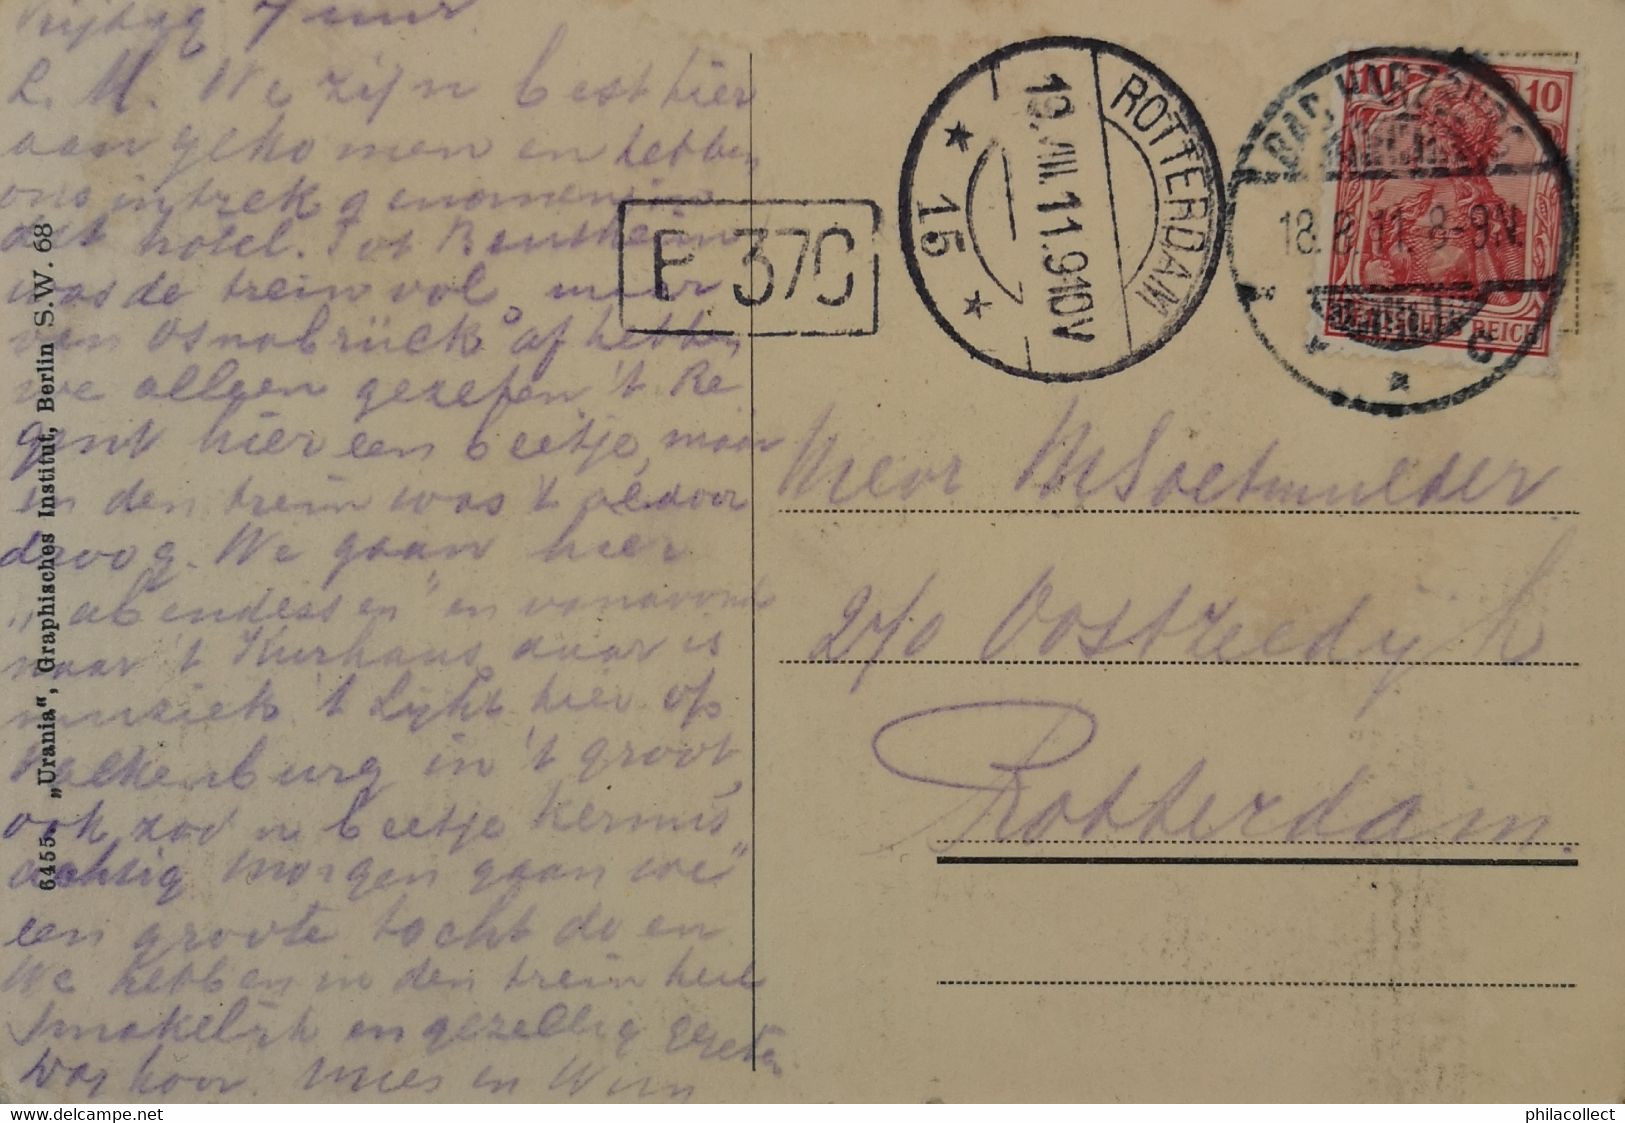 Vrijdag 7 uur
L. M. We zijn best hier
aangekomen en hebben
ons intrek genomen in
dit hotel. Tot Bentheim
was de trein vol, maar
van Osnabrück af hebben
we alleen gezeten 't Re
gent hier een beetje, maar
in den trein was 't
droog. We gaan hier
„abendessen" en vanavond
naar 't Kurhaus, daar is
muziek 't Lijkt hier op
Valkenburg in 't groot,
ook zoo'n beetje kermis
achtig morgen gaan we
een groote tocht doen
We hebben in den trein heel
smakelijk en gezellig gegeten
Dag hoor. Mies en Wim
6455. „Urania", Graphisches Institut, Berlin S.W. 68
P 370
ROTTERDAM
19.VIII.11. 9-10V
* 15 *
BAD HARZBURG
18.8.11. 8-9N.
* C
10 10
DEUTSCHES REICH
Soetmulder
Oostzeedijk
Rotterdam.
www.delcampe.net
philacollect